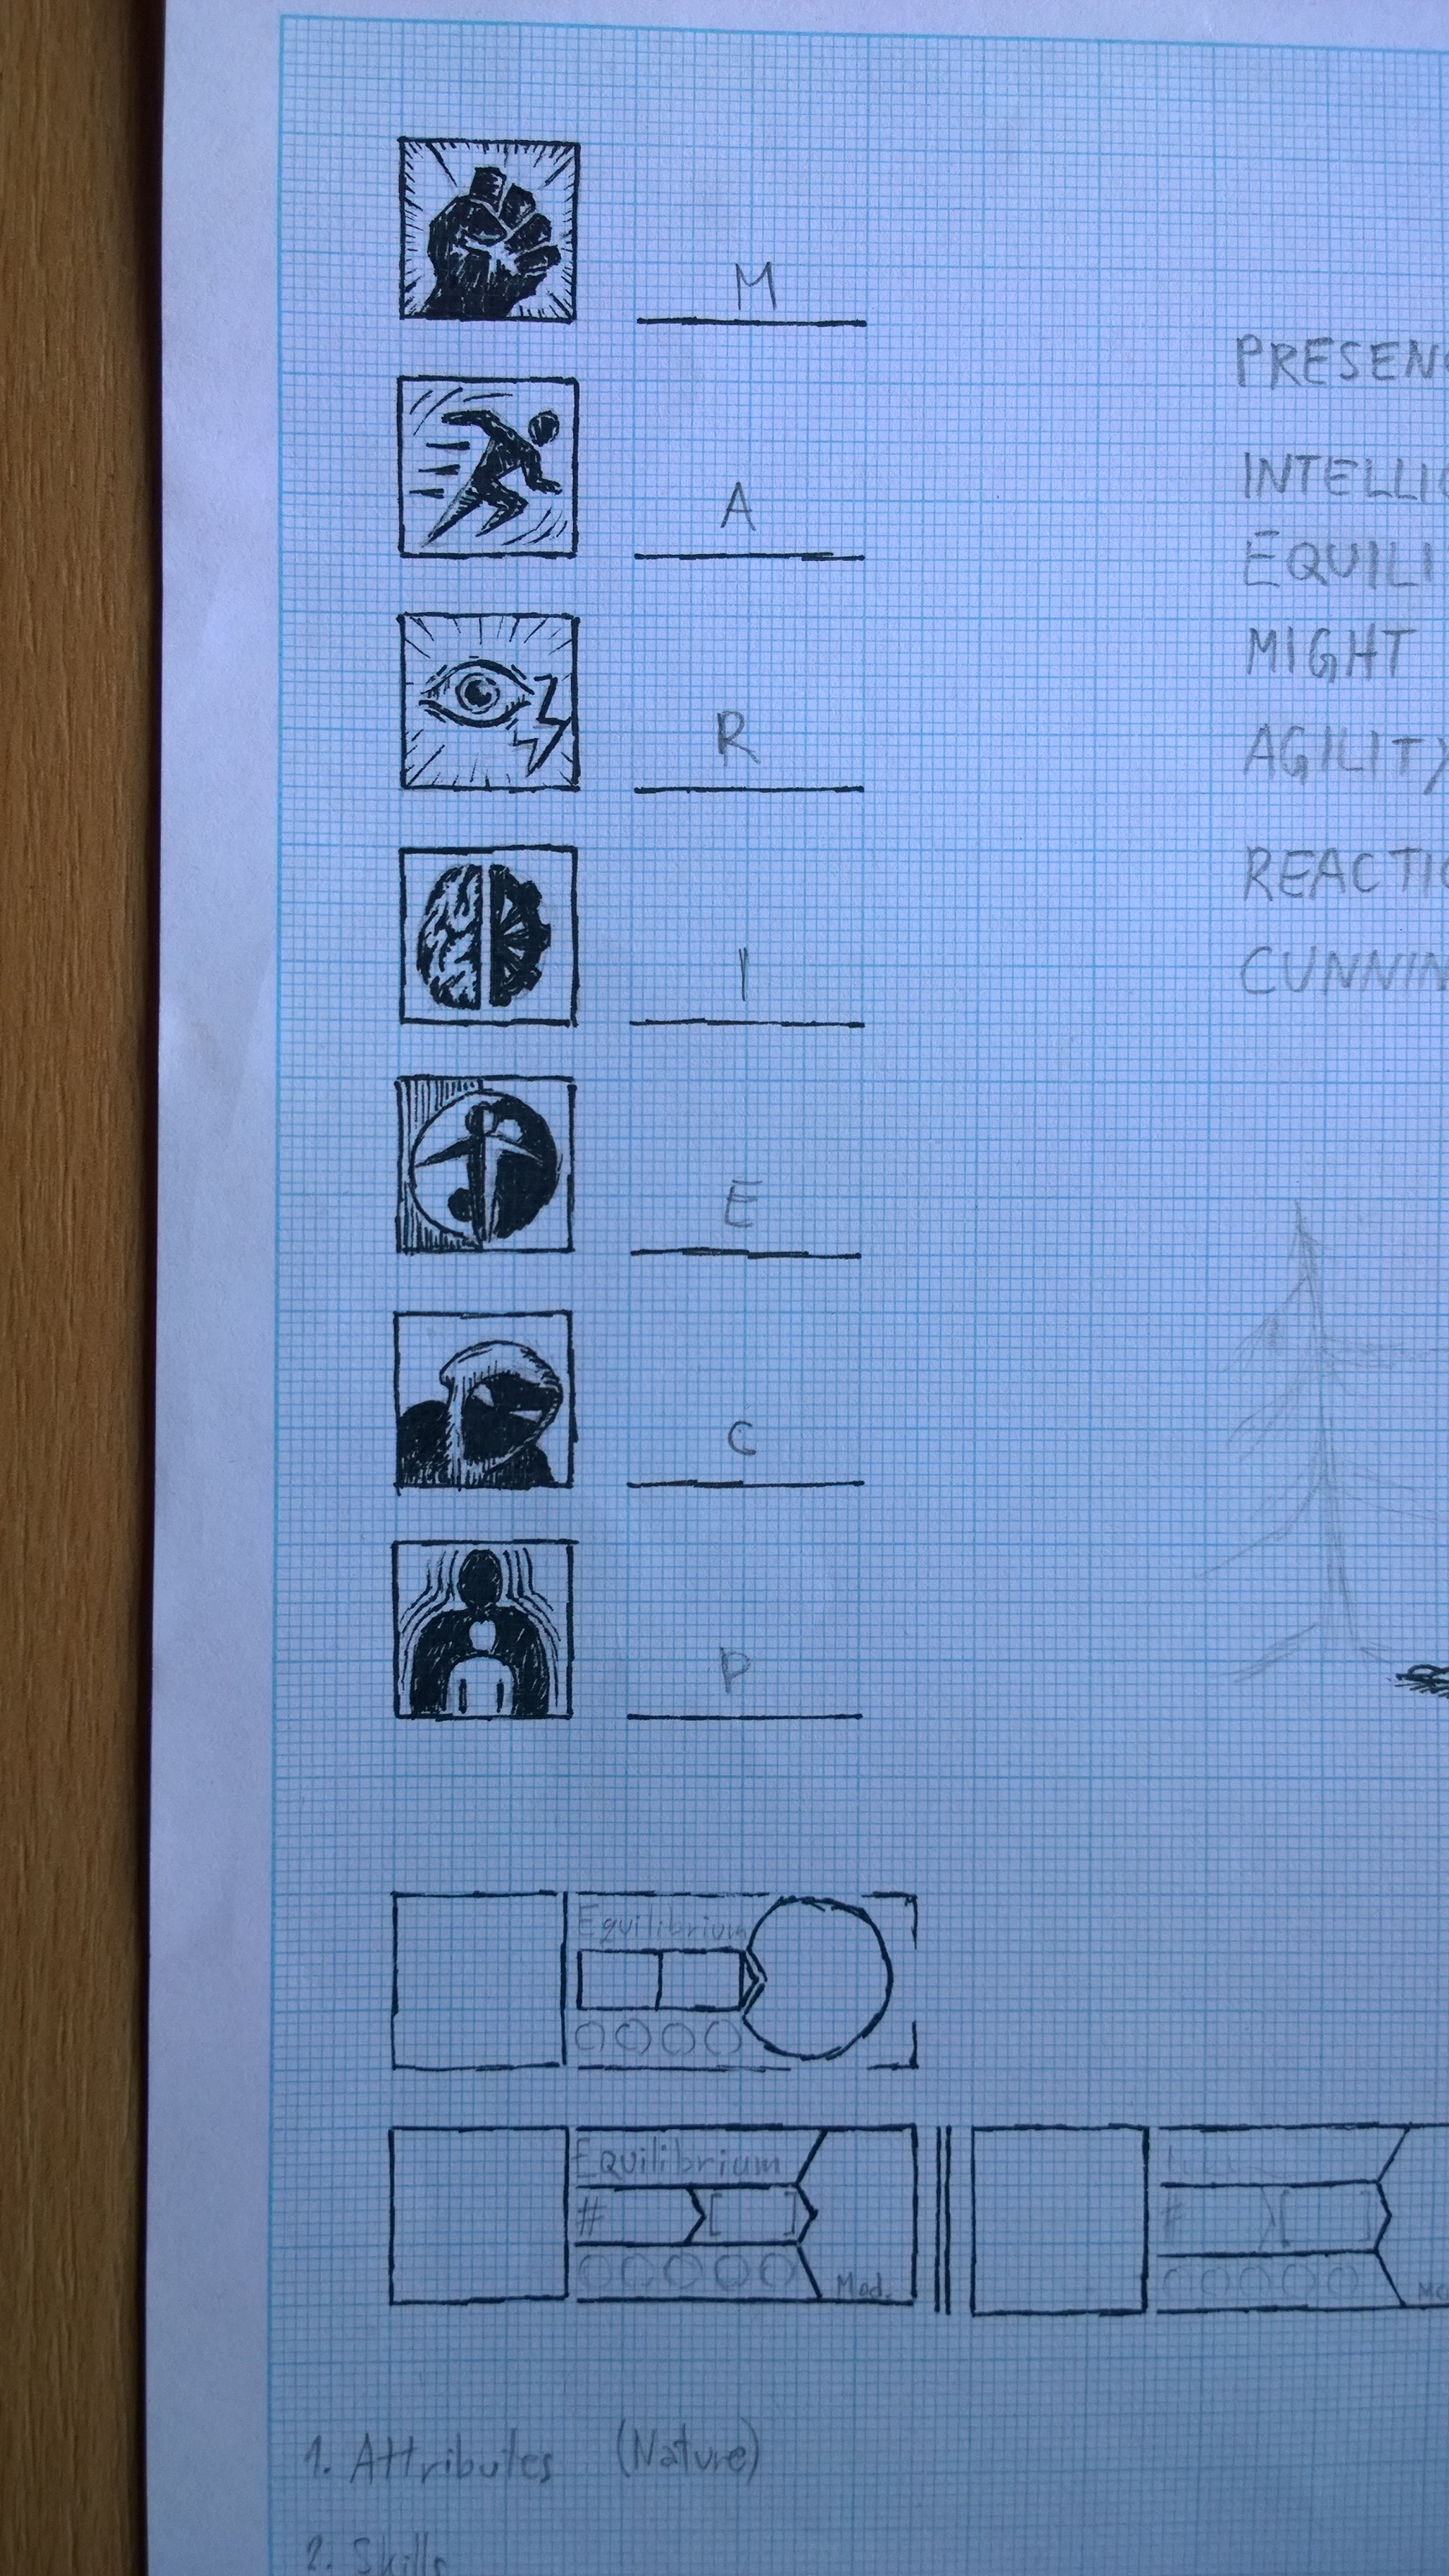 M
A
R
I
E
C
P
PRESEN
INTELLI
EQUILI
MIGHT
AGILITY
REACTIO
CUNNIN
Equilibrium
Equilibrium
# [ ]
Mod.
# [ ]
Mo
1. Attributes (Nature)
2. Skills